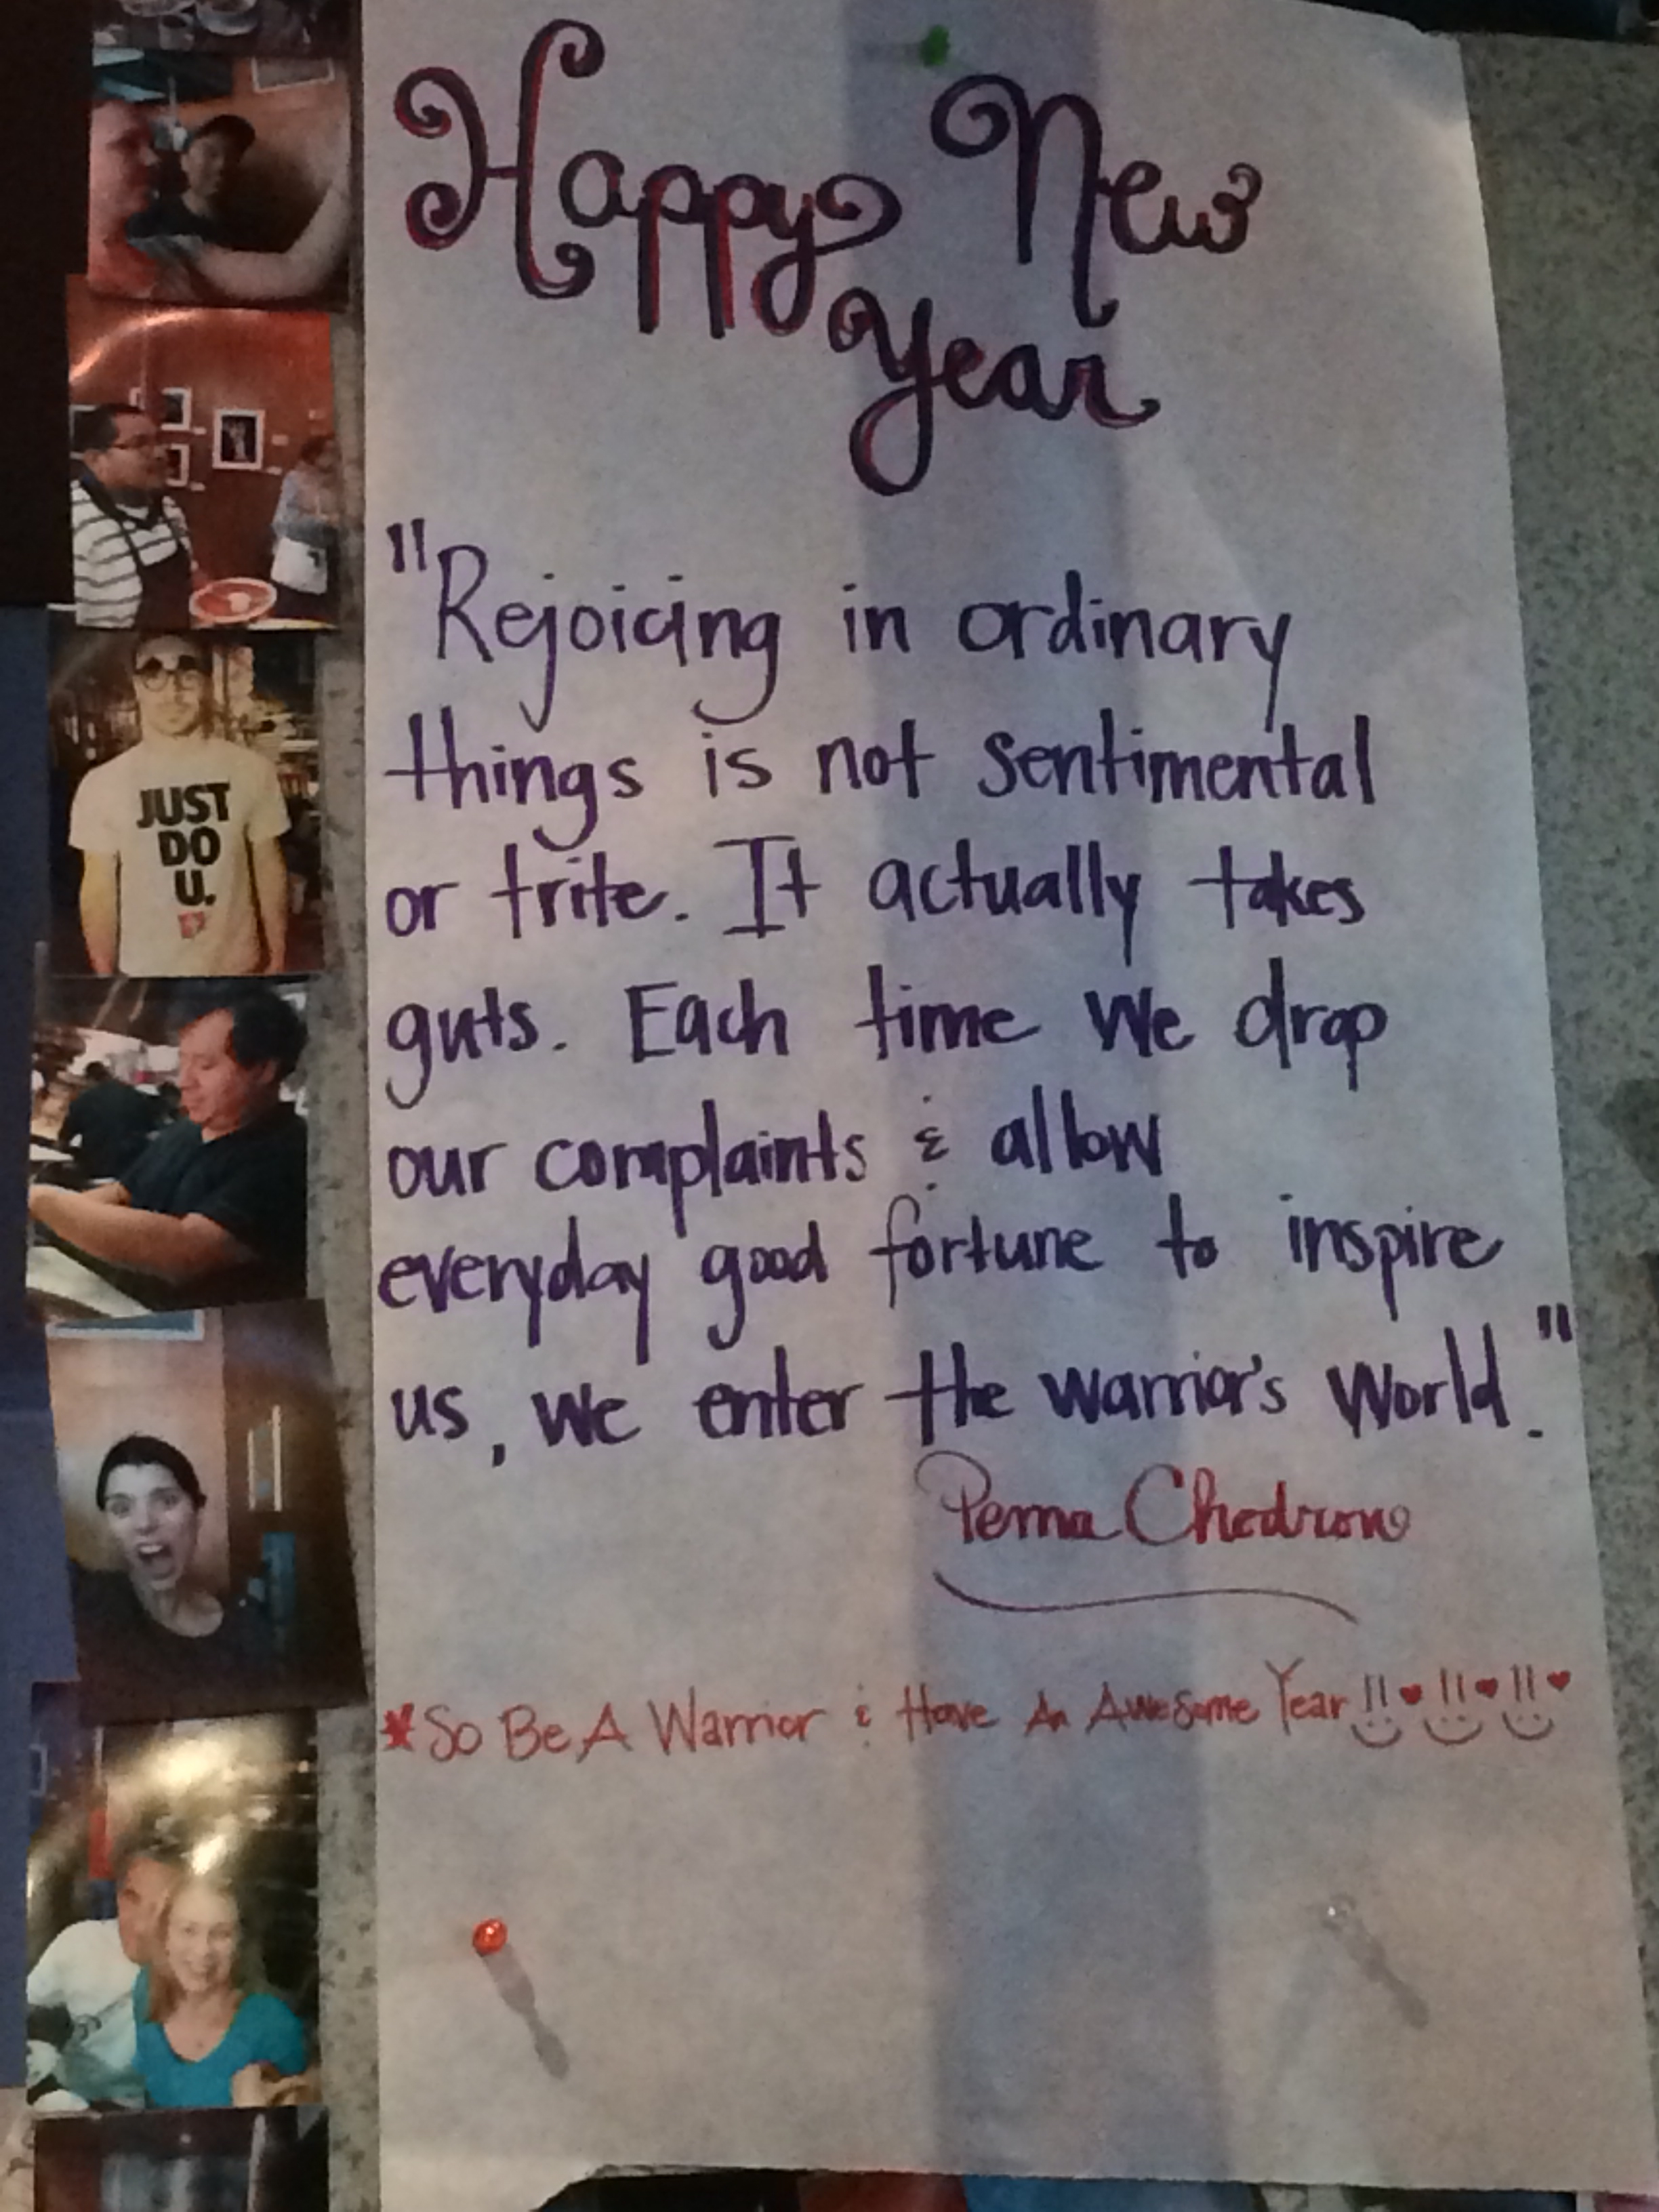 Happy New
Year
"Rejoicing in ordinary
things is not sentimental
or trite. It actually takes
guts. Each time we drop
our complaints & allow
everyday good fortune to inspire
us, we enter the warrior's world."
Pema Chodron
*So Be A Warrior & Have An Awesome Year!!♥!!♥!!♥
JUST
DO
U.